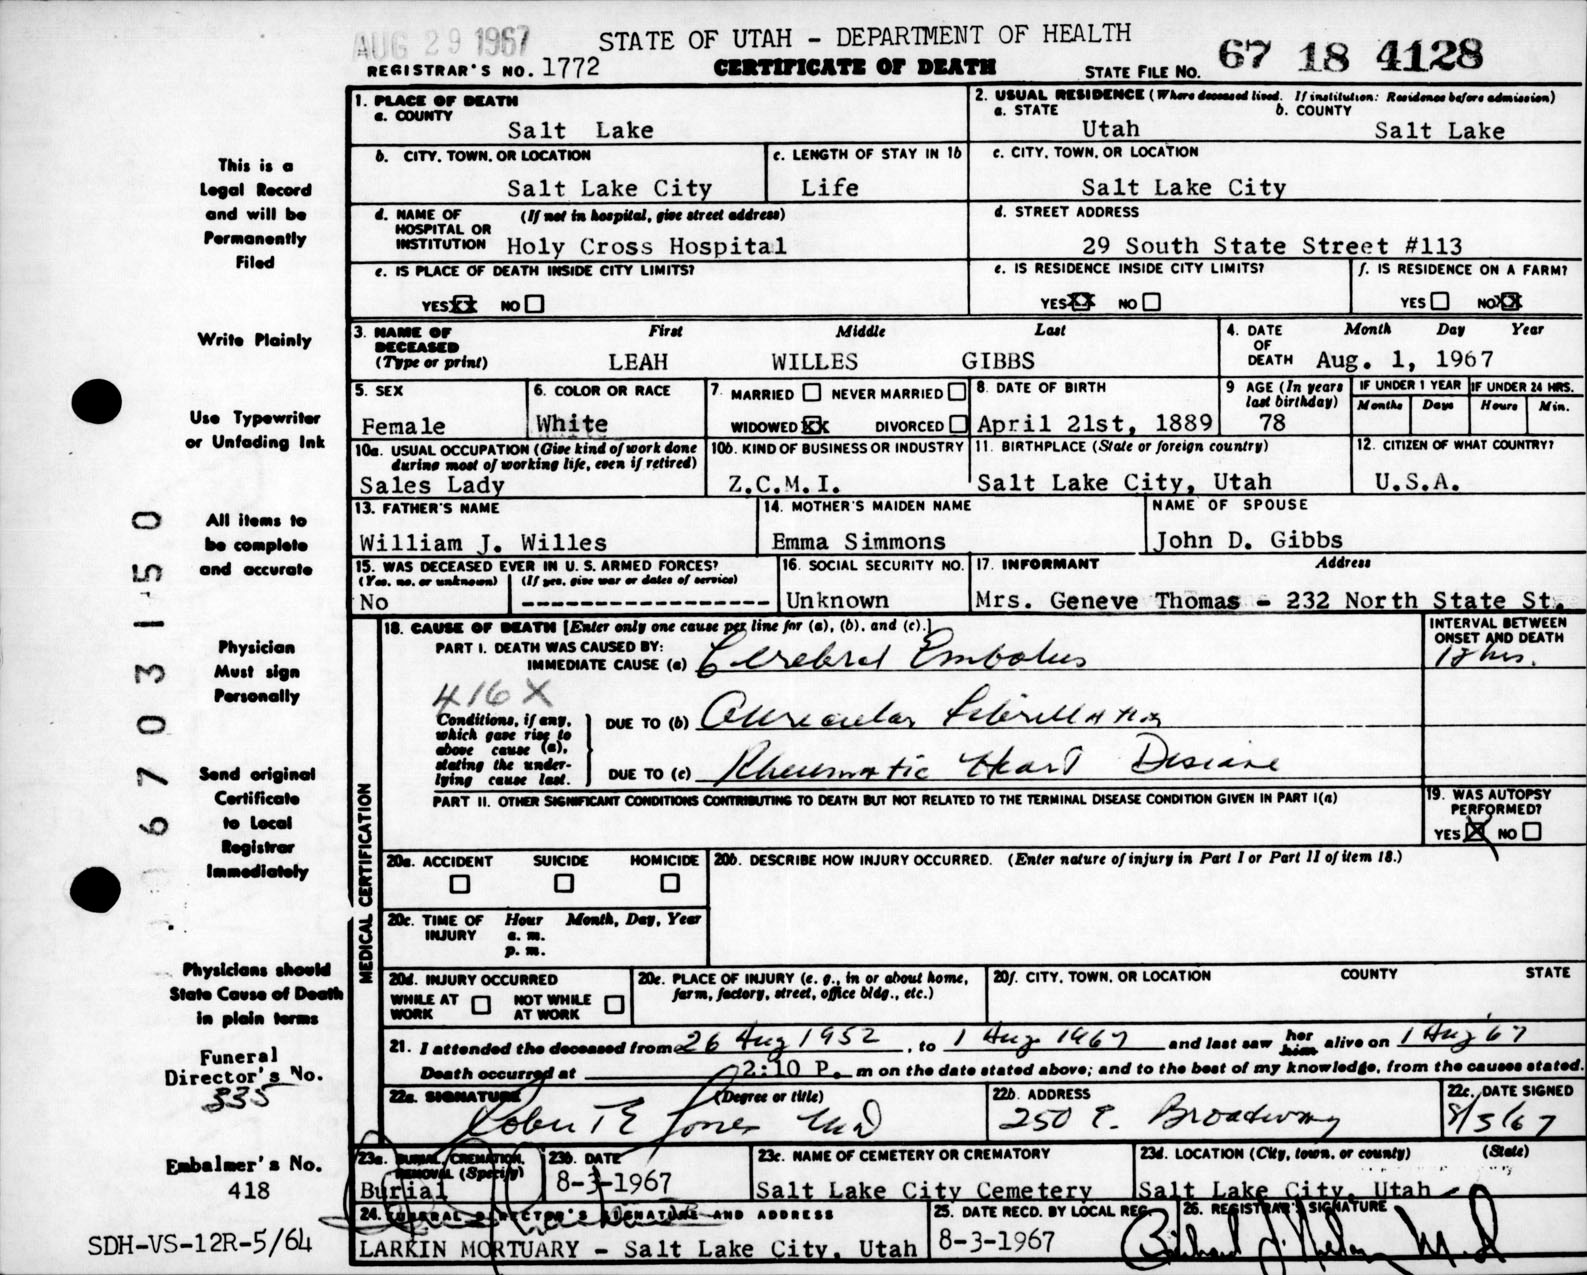 AUG 29 1967
STATE OF UTAH - DEPARTMENT OF HEALTH
REGISTRAR'S NO. 1772
CERTIFICATE OF DEATH
STATE FILE NO. 67 18 4128
1. PLACE OF DEATH
a. COUNTY
Salt Lake
2. USUAL RESIDENCE (Where deceased lived. If institution: Residence before admission)
a. STATE
Utah
b. COUNTY
Salt Lake
b. CITY, TOWN, OR LOCATION
Salt Lake City
c. LENGTH OF STAY IN 1b
Life
c. CITY, TOWN, OR LOCATION
Salt Lake City
d. NAME OF HOSPITAL OR INSTITUTION (If not in hospital, give street address)
Holy Cross Hospital
d. STREET ADDRESS
29 South State Street #113
e. IS PLACE OF DEATH INSIDE CITY LIMITS?
YES XX NO
e. IS RESIDENCE INSIDE CITY LIMITS?
YES XX NO
f. IS RESIDENCE ON A FARM?
YES NO XX
3. NAME OF DECEASED (Type or print)
First Middle Last
LEAH WILLES GIBBS
4. DATE OF DEATH
Month Day Year
Aug. 1, 1967
5. SEX
Female
6. COLOR OR RACE
White
7. MARRIED NEVER MARRIED
WIDOWED XX DIVORCED
8. DATE OF BIRTH
April 21st, 1889
9 AGE (In years last birthday)
78
IF UNDER 1 YEAR
Months Days
IF UNDER 24 HRS.
Hours Min.
10a. USUAL OCCUPATION (Give kind of work done during most of working life, even if retired)
Sales Lady
10b. KIND OF BUSINESS OR INDUSTRY
Z.C.M.I.
11. BIRTHPLACE (State or foreign country)
Salt Lake City, Utah
12. CITIZEN OF WHAT COUNTRY?
U.S.A.
13. FATHER'S NAME
William J. Willes
14. MOTHER'S MAIDEN NAME
Emma Simmons
NAME OF SPOUSE
John D. Gibbs
15. WAS DECEASED EVER IN U.S. ARMED FORCES?
(Yes, no, or unknown) (If yes, give war or dates of service)
No ------------------
16. SOCIAL SECURITY NO.
Unknown
17. INFORMANT Address
Mrs. Geneve Thomas - 232 North State St.
MEDICAL CERTIFICATION
18. CAUSE OF DEATH [Enter only one cause per line for (a), (b), and (c).]
INTERVAL BETWEEN ONSET AND DEATH
PART I. DEATH WAS CAUSED BY:
IMMEDIATE CAUSE (a) Cerebral Embolus
12 hrs.
416 X
Conditions, if any, which gave rise to above cause (a), stating the underlying cause last.
DUE TO (b) Auricular Fibrillation
DUE TO (c) Rheumatic Heart Disease
PART II. OTHER SIGNIFICANT CONDITIONS CONTRIBUTING TO DEATH BUT NOT RELATED TO THE TERMINAL DISEASE CONDITION GIVEN IN PART I(a)
19. WAS AUTOPSY PERFORMED?
YES X NO
20a. ACCIDENT SUICIDE HOMICIDE
20b. DESCRIBE HOW INJURY OCCURRED. (Enter nature of injury in Part I or Part II of item 18.)
20c. TIME OF INJURY Hour Month, Day, Year
a. m.
p. m.
20d. INJURY OCCURRED
WHILE AT WORK NOT WHILE AT WORK
20e. PLACE OF INJURY (e. g., in or about home, farm, factory, street, office bldg., etc.)
20f. CITY, TOWN, OR LOCATION COUNTY STATE
21. I attended the deceased from 26 Aug 1952, to 1 Aug 1967 and last saw her him alive on 1 Aug '67
Death occurred at 2:10 P. m on the date stated above; and to the best of my knowledge, from the causes stated.
22a. SIGNATURE (Degree or title)
Robert E Jones MD
22b. ADDRESS
250 E. Broadway
22c. DATE SIGNED
8/3/67
23a. BURIAL, CREMATION, REMOVAL (Specify)
Burial
23b. DATE
8-3-1967
23c. NAME OF CEMETERY OR CREMATORY
Salt Lake City Cemetery
23d. LOCATION (City, town, or county) (State)
Salt Lake City, Utah
24. FUNERAL DIRECTOR'S SIGNATURE AND ADDRESS
LARKIN MORTUARY - Salt Lake City, Utah
25. DATE RECD. BY LOCAL REG.
8-3-1967
26. REGISTRAR'S SIGNATURE
This is a
Legal Record
and will be
Permanently
Filed
Write Plainly
Use Typewriter
or Unfading Ink
All items to
be complete
and accurate
Physician
Must sign
Personally
Send original
Certificate
to Local
Registrar
Immediately
Physicians should
State Cause of Death
in plain terms
Funeral
Director's No.
335
Embalmer's No.
418
SDH-VS-12R-5/64